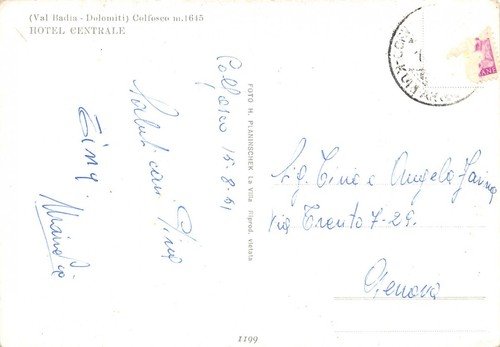 (Val Badia - Dolomiti) Colfosco m.1645
HOTEL CENTRALE
Colfosco 15.8.61
Saluti cari
Gina
Gini
FOTO H. PLANINSCHEK La Villa Riprod. vietata
Sig. Tina e Angela
Via Trento 7-29.
Genova
1199